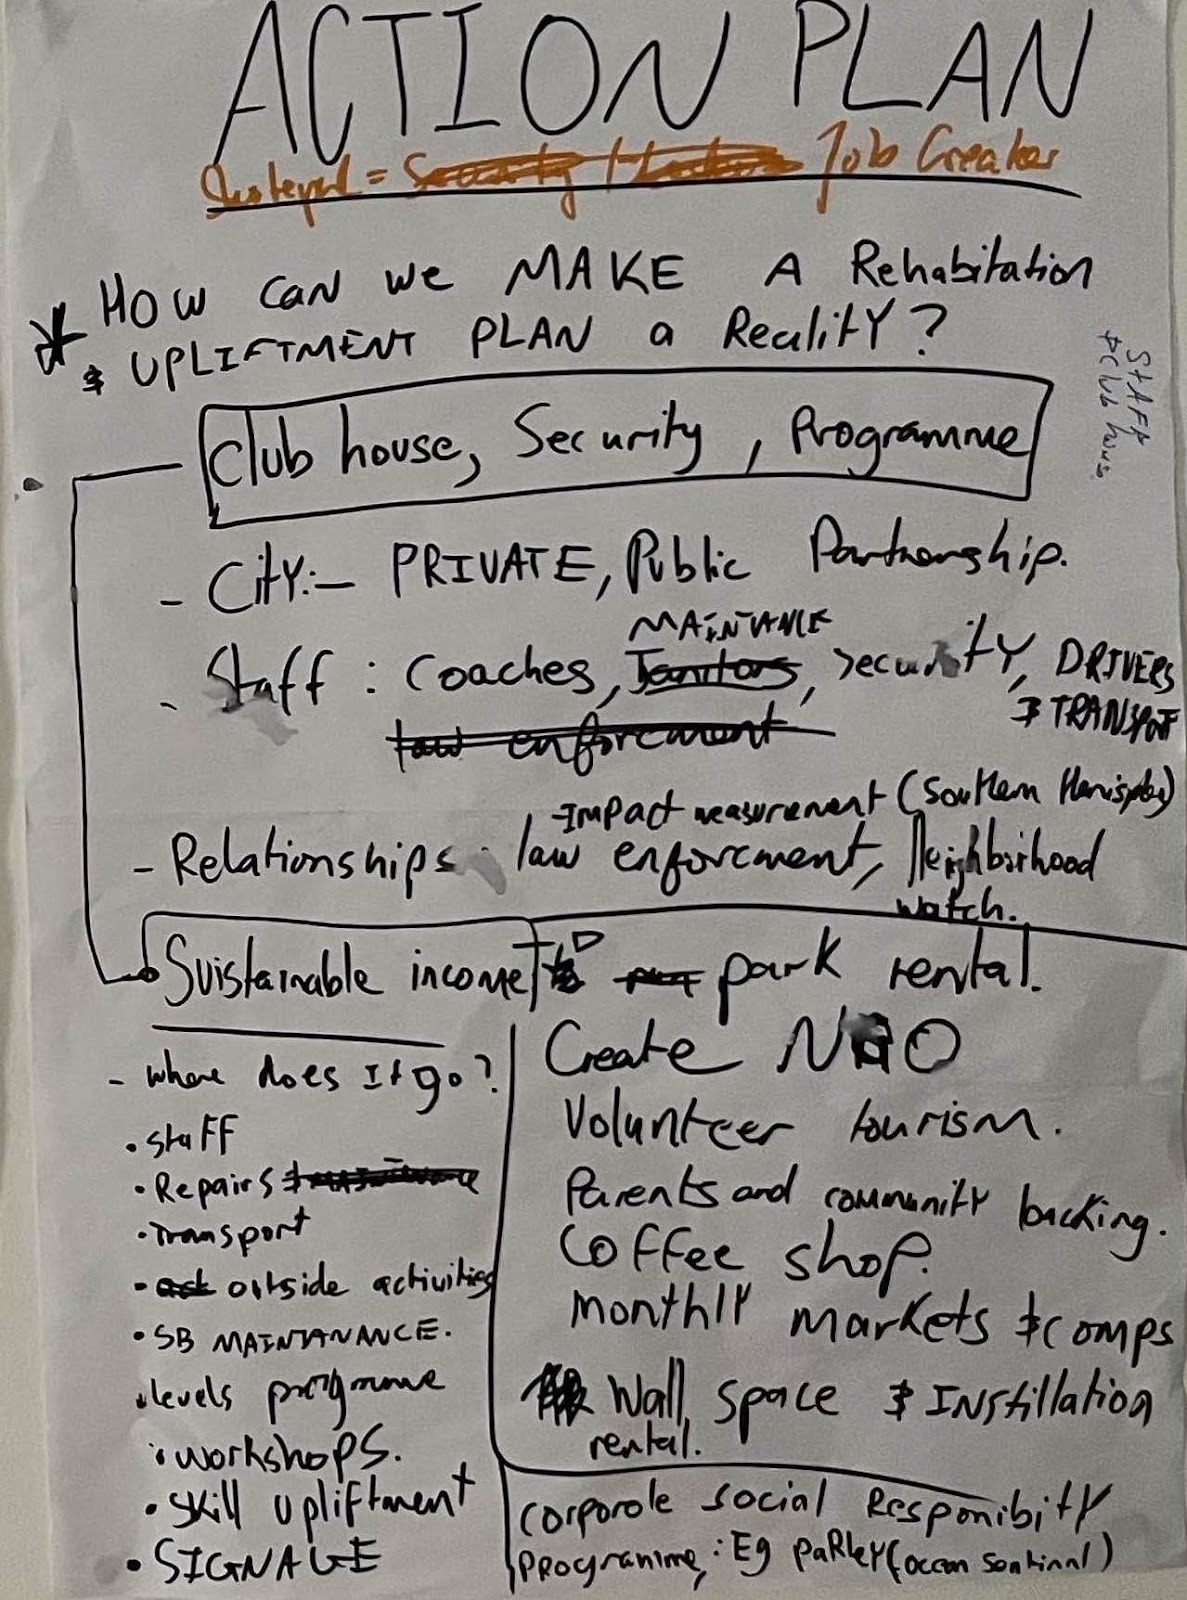 ACTION PLAN
= Job Creator
HOW CAN WE MAKE A Rehabitation
& UPLIFTMENT PLAN a Reality?
STAFF
& Club hous.
Club house, Security, Programme
- City:- PRIVATE, Public Partnership.
MAINTANCE
- Staff: Coaches, Janitors, Security, DRIVERS
& TRANSPOT
law enforcement
- Impact measurement (Southern
- Relationships: law enforcment, Neighbirhood
watch.
Suistainable income park rental.
Create
- where does It go?
Volunteer tourism.
• staff
• Repairs
Parents and community backing.
• Transport
Coffee shop.
• outside activities
monthly markets & comps
• SB MAINTANANCE.
• levels programme
Wall space & INStillation
rental.
• workshops.
• Skill upliftment
Corporole social Responibity
programme; Eg PaRley (ocean
• SIGNAGE